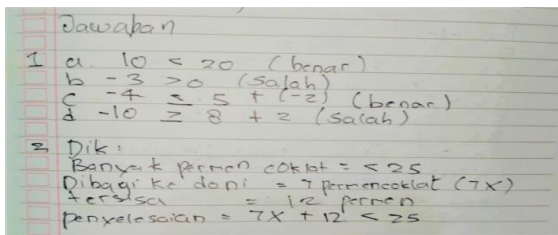 Jawaban
1 a. 10 < 20 (benar)
b -3 >0 (salah)
c -4 ≤ 5 + (-2) (benar)
d -10 ≥ 8 + 2 (salah)
2 Dik:
Banyak permen coklat = < 25
Dibagi ke doni = 7 permen coklat (7x)
tersisa = 12 permen
penyelesaian = 7x + 12 < 25